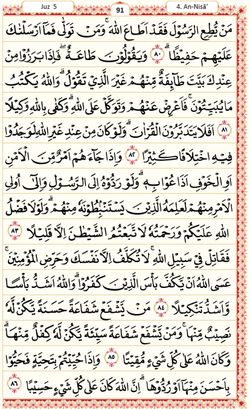 Juz 5
91
4. An-Nisā'
مَنْ يُّطِعِ الرَّسُوْلَ فَقَدْ اَطَاعَ اللّٰهَ ۚ وَمَنْ تَوَلّٰى فَمَآ اَرْسَلْنٰكَ
عَلَيْهِمْ حَفِيْظًا ۗ ٨٠ وَيَقُوْلُوْنَ طَاعَةٌ ۖ فَاِذَا بَرَزُوْا مِنْ
عِنْدِكَ بَيَّتَ طَآىِٕفَةٌ مِّنْهُمْ غَيْرَ الَّذِيْ تَقُوْلُ ۗ وَاللّٰهُ يَكْتُبُ
مَا يُبَيِّتُوْنَ ۚ فَاَعْرِضْ عَنْهُمْ وَتَوَكَّلْ عَلَى اللّٰهِ ۗ وَكَفٰى بِاللّٰهِ وَكِيْلًا
٨١ اَفَلَا يَتَدَبَّرُوْنَ الْقُرْاٰنَ ۗ وَلَوْ كَانَ مِنْ عِنْدِ غَيْرِ اللّٰهِ لَوَجَدُوْا
فِيْهِ اخْتِلَافًا كَثِيْرًا ٨٢ وَاِذَا جَاۤءَهُمْ اَمْرٌ مِّنَ الْاَمْنِ
اَوِ الْخَوْفِ اَذَاعُوْا بِهٖ ۗ وَلَوْ رَدُّوْهُ اِلَى الرَّسُوْلِ وَاِلٰٓى اُولِى
الْاَمْرِ مِنْهُمْ لَعَلِمَهُ الَّذِيْنَ يَسْتَنْۢبِطُوْنَهٗ مِنْهُمْ ۗ وَلَوْلَا فَضْلُ
اللّٰهِ عَلَيْكُمْ وَرَحْمَتُهٗ لَاتَّبَعْتُمُ الشَّيْطٰنَ اِلَّا قَلِيْلًا ٨٣
فَقَاتِلْ فِيْ سَبِيْلِ اللّٰهِ ۚ لَا تُكَلَّفُ اِلَّا نَفْسَكَ وَحَرِّضِ الْمُؤْمِنِيْنَ ۚ
عَسَى اللّٰهُ اَنْ يَّكُفَّ بَأْسَ الَّذِيْنَ كَفَرُوْا ۗ وَاللّٰهُ اَشَدُّ بَأْسًا
وَّاَشَدُّ تَنْكِيْلًا ٨٤ مَنْ يَّشْفَعْ شَفَاعَةً حَسَنَةً يَّكُنْ لَّهٗ
نَصِيْبٌ مِّنْهَا ۚ وَمَنْ يَّشْفَعْ شَفَاعَةً سَيِّئَةً يَّكُنْ لَّهٗ كِفْلٌ مِّنْهَا ۗ
وَكَانَ اللّٰهُ عَلٰى كُلِّ شَيْءٍ مُّقِيْتًا ٨٥ وَاِذَا حُيِّيْتُمْ بِتَحِيَّةٍ فَحَيُّوْا
بِاَحْسَنَ مِنْهَآ اَوْ رُدُّوْهَا ۗ اِنَّ اللّٰهَ كَانَ عَلٰى كُلِّ شَيْءٍ حَسِيْبًا ٨٦